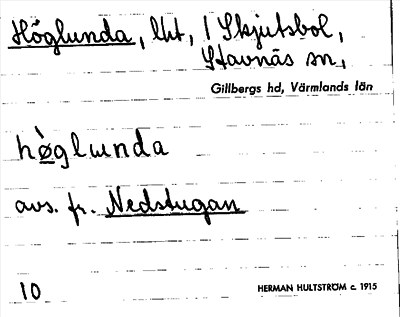 Höglunda, lht, 1 Skjutsbol,
Stavnäs sn,
Gillbergs hd, Värmlands län
hò̤glunda
avs. fr. Nedstugan
10
HERMAN HULTSTRÖM c. 1915